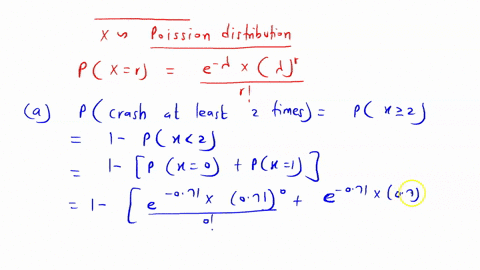 X ~ Poission distribution
P(X=r) = e^-λ × (λ)^r / r!
(a) P(crash at least 2 times) = P(x≥2)
= 1- P(x<2)
= 1- [P(x=0) + P(x=1)]
= 1- [e^-0.71 × (0.71)^0 / 0! + e^-0.71 × (0.7)